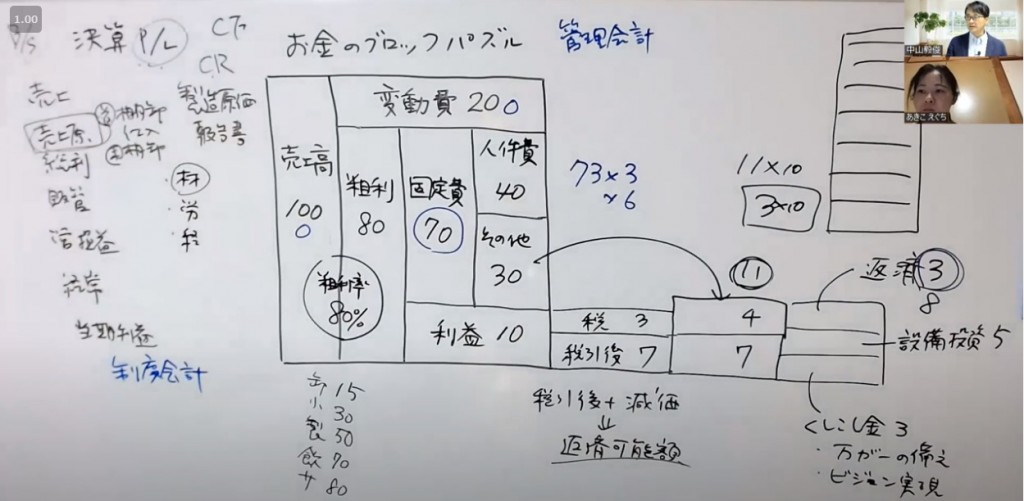 1.00
B/S 決算 P/L CF
CR
お金のブロックパズル
管理会計
売上
売上原.
総利
販管
営 利益
経常
当期利益
制度会計
製造原価
報告書
・材
・労
・経
変動費 20 0
売上高
100
0
粗利
80
粗利率
80%
固定費
70
人件費
40
その他
30
利益 10
73×3
×6
税 3
税引後 7
11
4
7
11×10
3×10
返済 3
8
設備投資 5
くりこし金 3
・万が一の備え
・ビジョン実現
税引後+減価
↓
返済可能額
卸 15
小 30
製 50
飲 70
サ 80
中山
あきこ えぐち